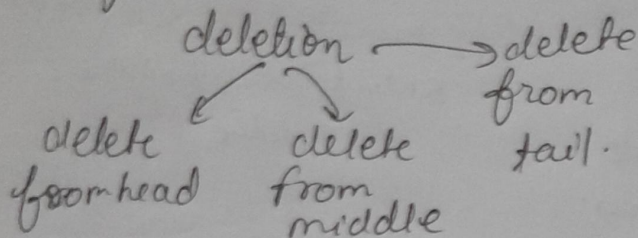 deletion → delete
from
tail.
delete
from head
delete
from
middle